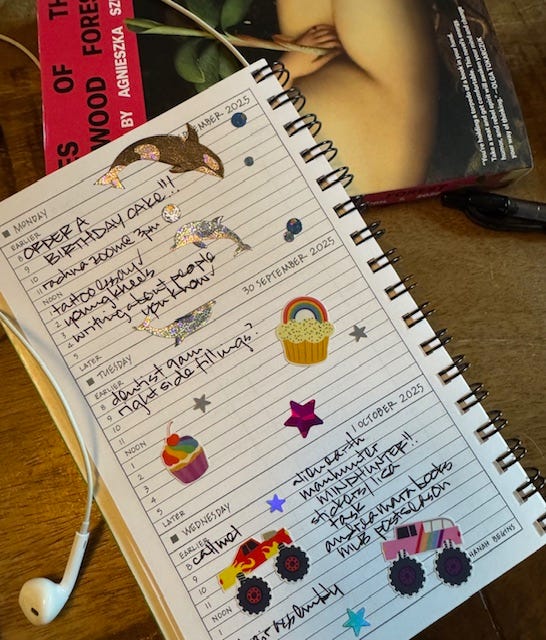 OF
WOOD FORES
BY AGNIESZKA SZ
- OLGA TOKARCZUK
EMBER 2025
MONDAY
EARLIER
8 ORDER A
9 BIRTHDAY CAKE!!!
10
11 radna zoom @ 3pm
NOON
1 tattoo essay/
2 young kheels
3 writing about people
4 you know/
5
LATER
30 SEPTEMBER 2025
TUESDAY
EARLIER
8 dentist 9am
9 right side fillings?
10
11
NOON
1
2
3
4
5
LATER
1 OCTOBER 2025
WEDNESDAY
EARLIER
8 call
9
10
11
NOON
1
alien earth
manhunter
MINDHUNTER!!
stickers / lisa
task
andrea mara books
MLB postseason
HANAH BEGINS
assembly